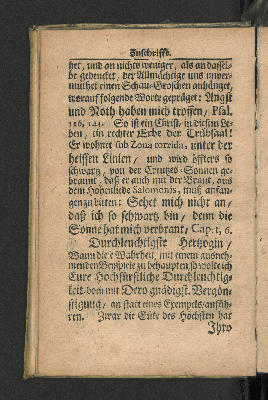 Zuschrifft.
het, und an nichts weniger, als an dassel-
be gedencket, der Allmächtige uns unver-
muthet einen Schau-Groschen anhänget,
worauf folgende Worte gepräget: Angst
und Noth haben mich troffen, Psal.
116, 143. So ist ein Christ, in diesem Le-
ben, ein rechter Erbe der Trübsaal!
Er wohnet sub Zona torrida, unter der
heissen Linien, und wird öffters so
schwartz, von der Creutzes-Sonnen ge-
brannt, daß er auch mit der Braut, aus
dem Hohenliede Salomonis, muß anfan-
gen zu bitten: Sehet mich nicht an,
daß ich so schwartz bin, denn die
Sonne hat mich verbrant, Cap. 1, 6.
Durchleuchtigste Hertzogin,
Wann die Wahrheit, mit einem ausneh-
menden Beyspiele zu behaupten so wolte ich
Eure Hochfürstliche Durchleuchtig-
keit, doch mit Dero gnädigst. Vergön-
stigung, an statt eines Exempels, anfüh-
ren. Zwar die Güte des Höchsten hat
Ihro